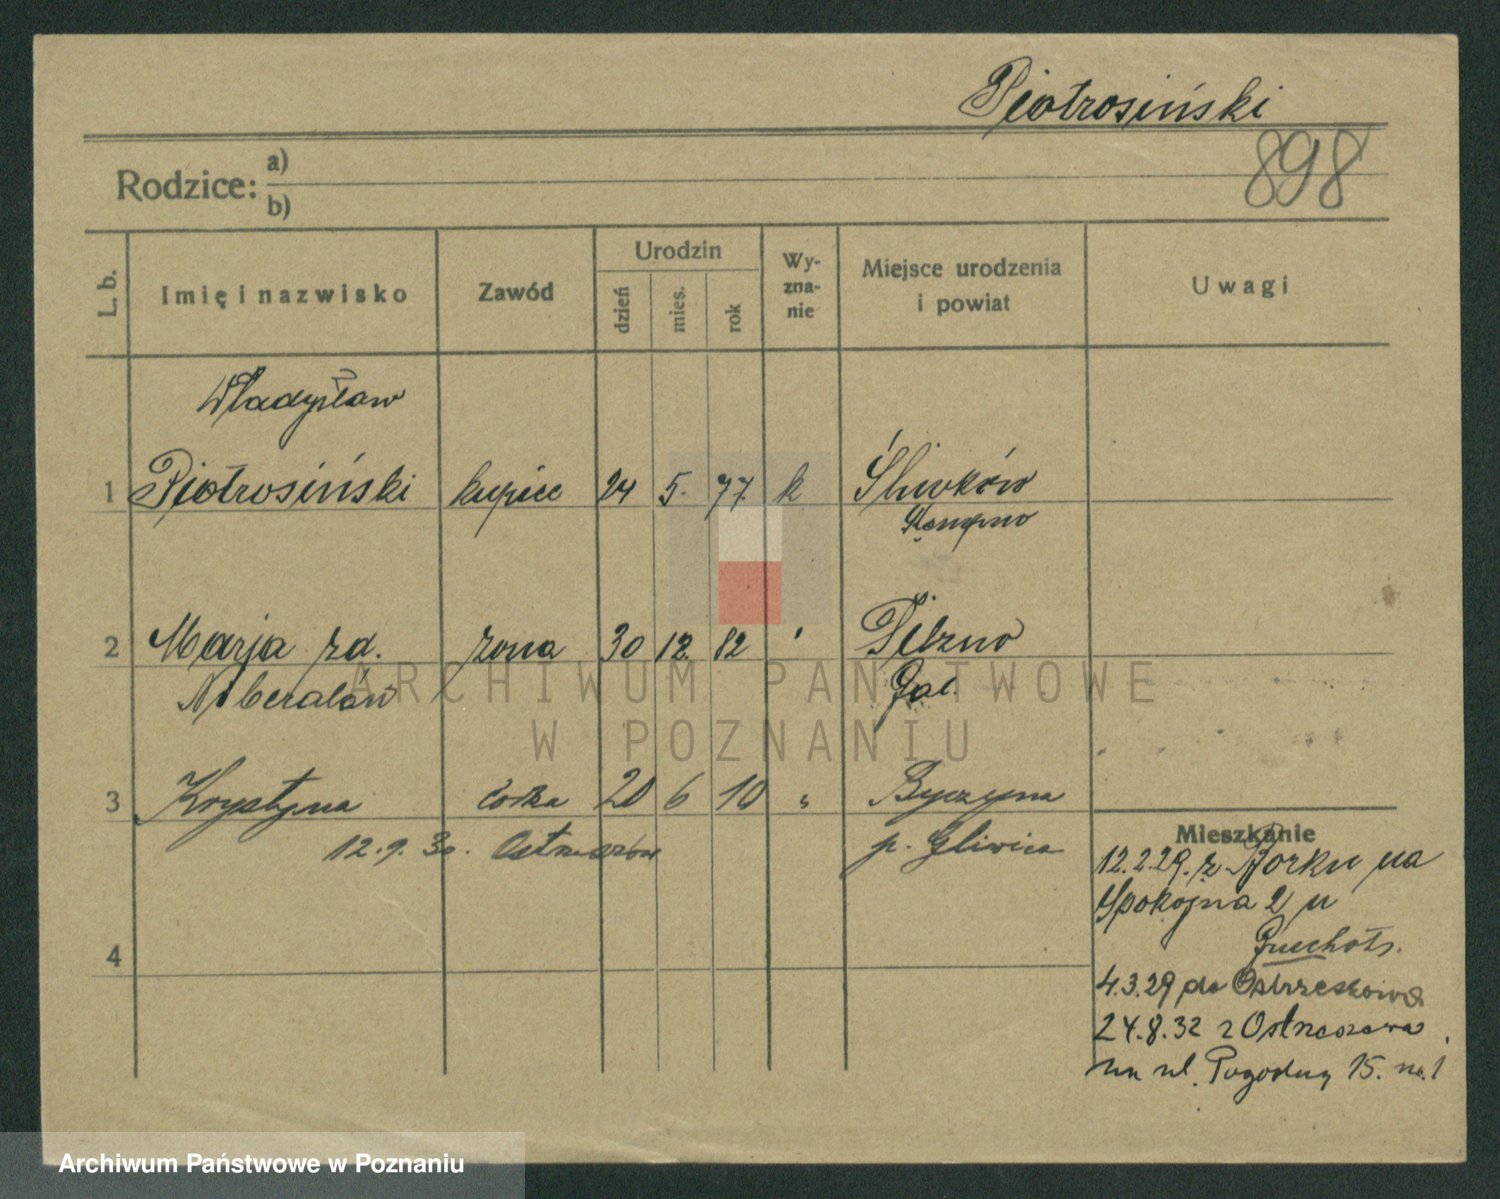 Piotrosiński
898
Rodzice: a)
b)
L. b.
Imię i nazwisko
Zawód
Urodzin
dzień
mies.
rok
Wy-
zna-
nie
Miejsce urodzenia
i powiat
Uwagi
Władysław
1 Piotrosiński kupiec 24 5. 77. k Śliwków
Kempno
2 Marja zd. żona 30 12. 82 " Pilzno
Gal.
3 Krystyna córka 20 6 10 " Byczyna
12.9.30. Ostrzeszów p. Gliwice
4
Mieszkanie
12.2.29. z Borku na
Spokojna 2 u
4.3.29 do Ostrzeszowa
24.8.32 z Ostrzeszowa
na ul. Pogodną 15. m. 1
ARCHIWUM PAŃSTWOWE
W POZNANIU
Archiwum Państwowe w Poznaniu